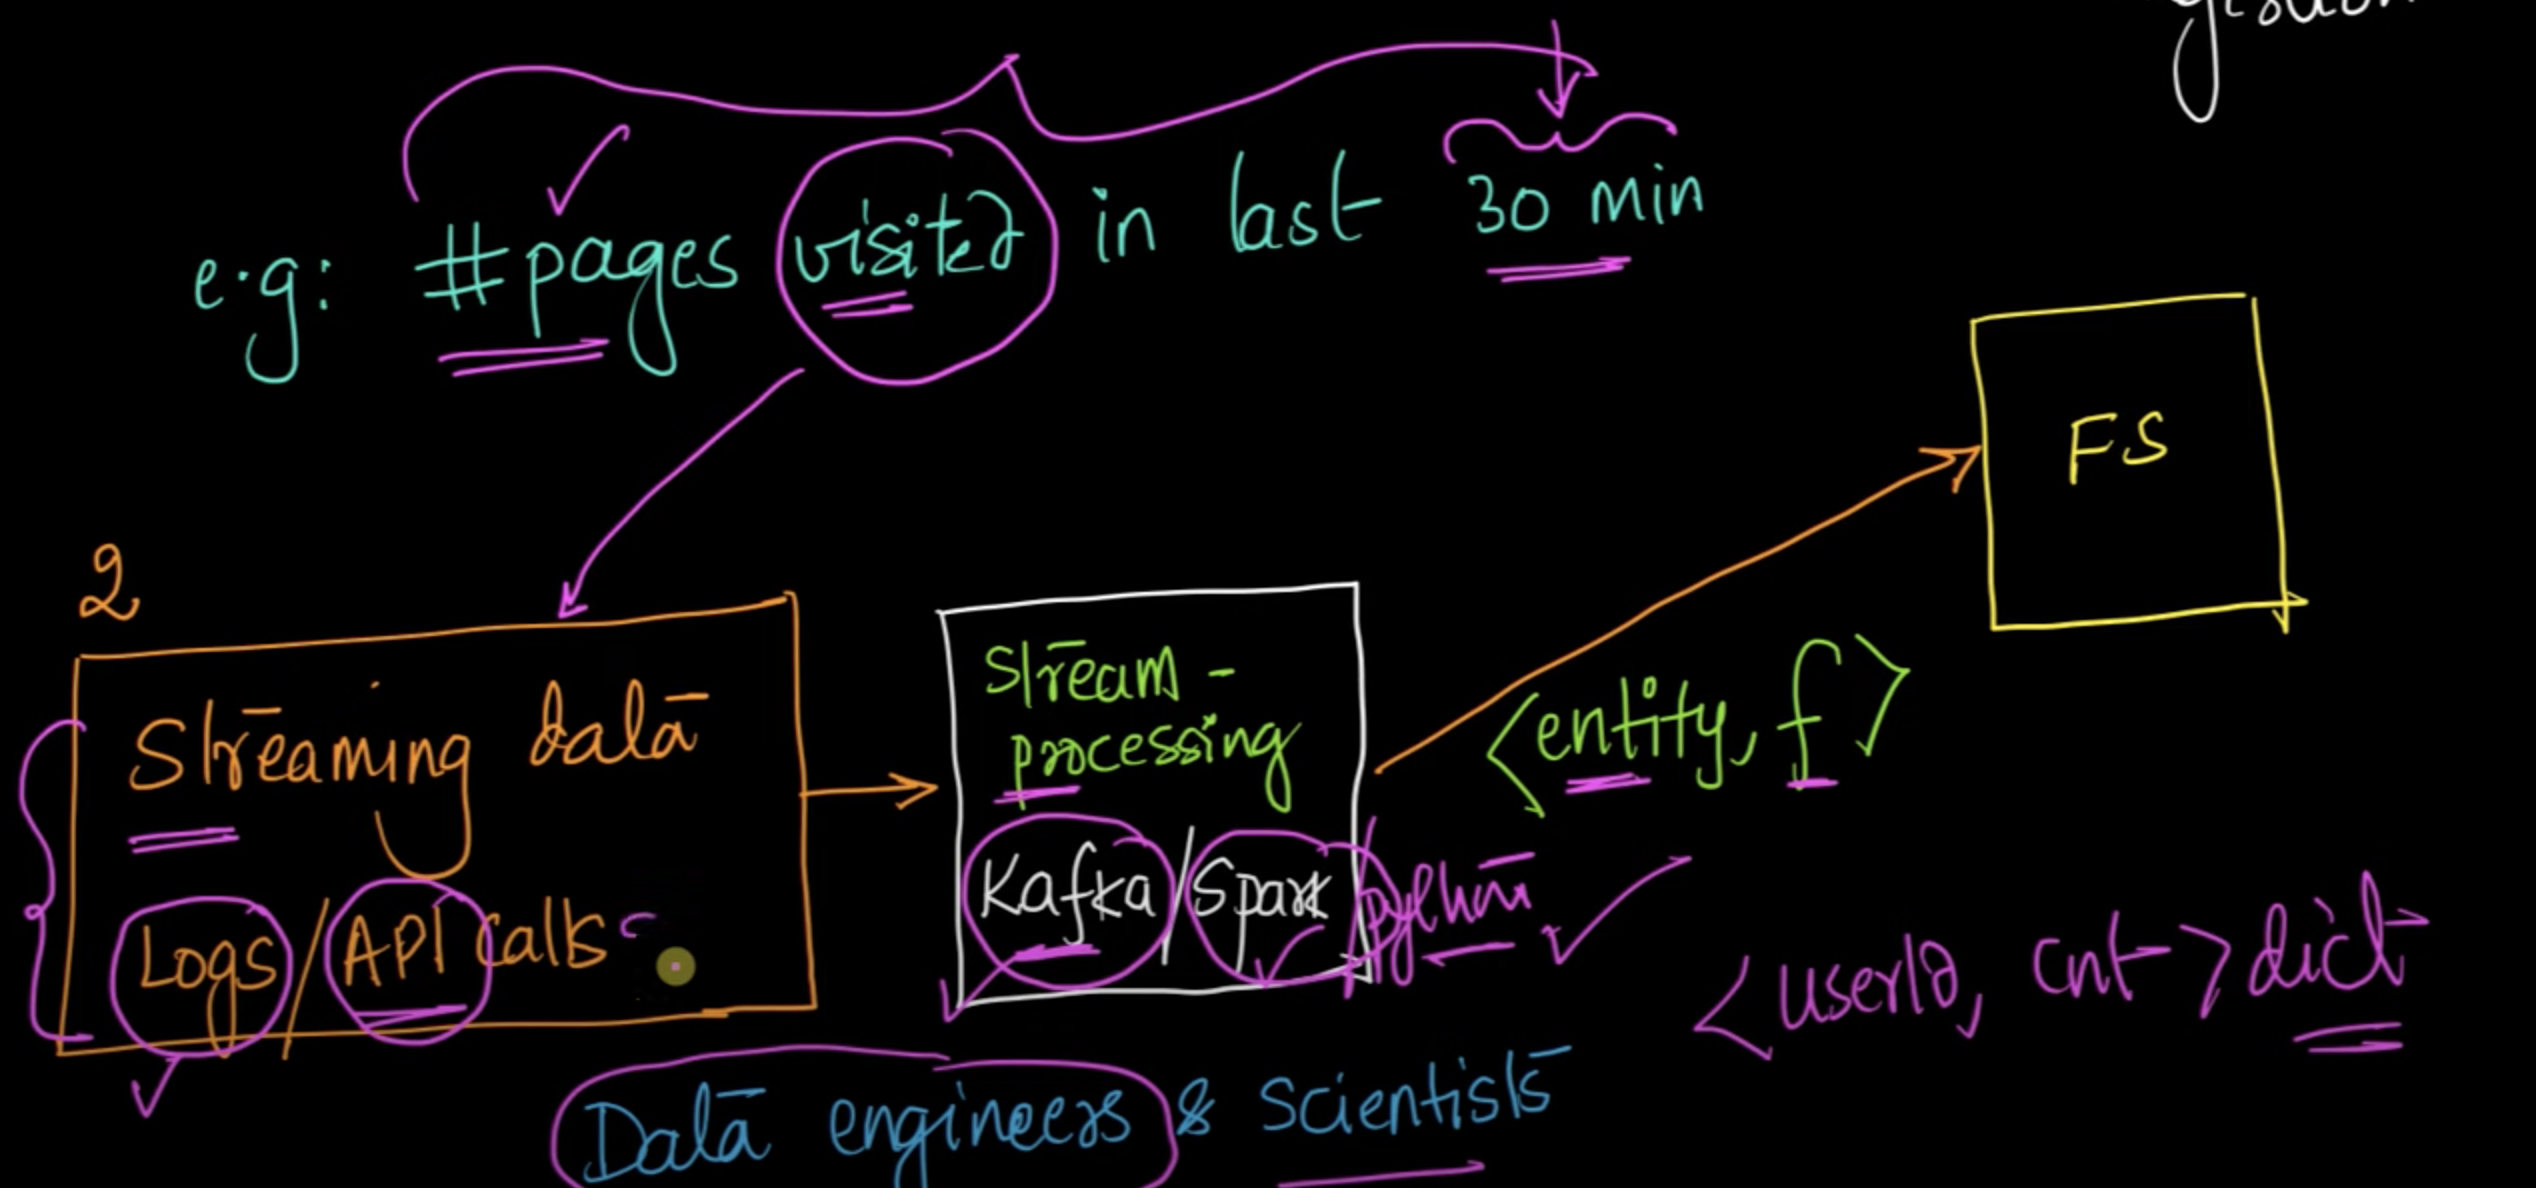 e.g: #pages visited in last 30 min
FS
2
Streaming data
Logs/API calls
Stream-
processing
Kafka/Spark
python
<entity, f>
<userId, cnt> dict
Data engineers & Scientists